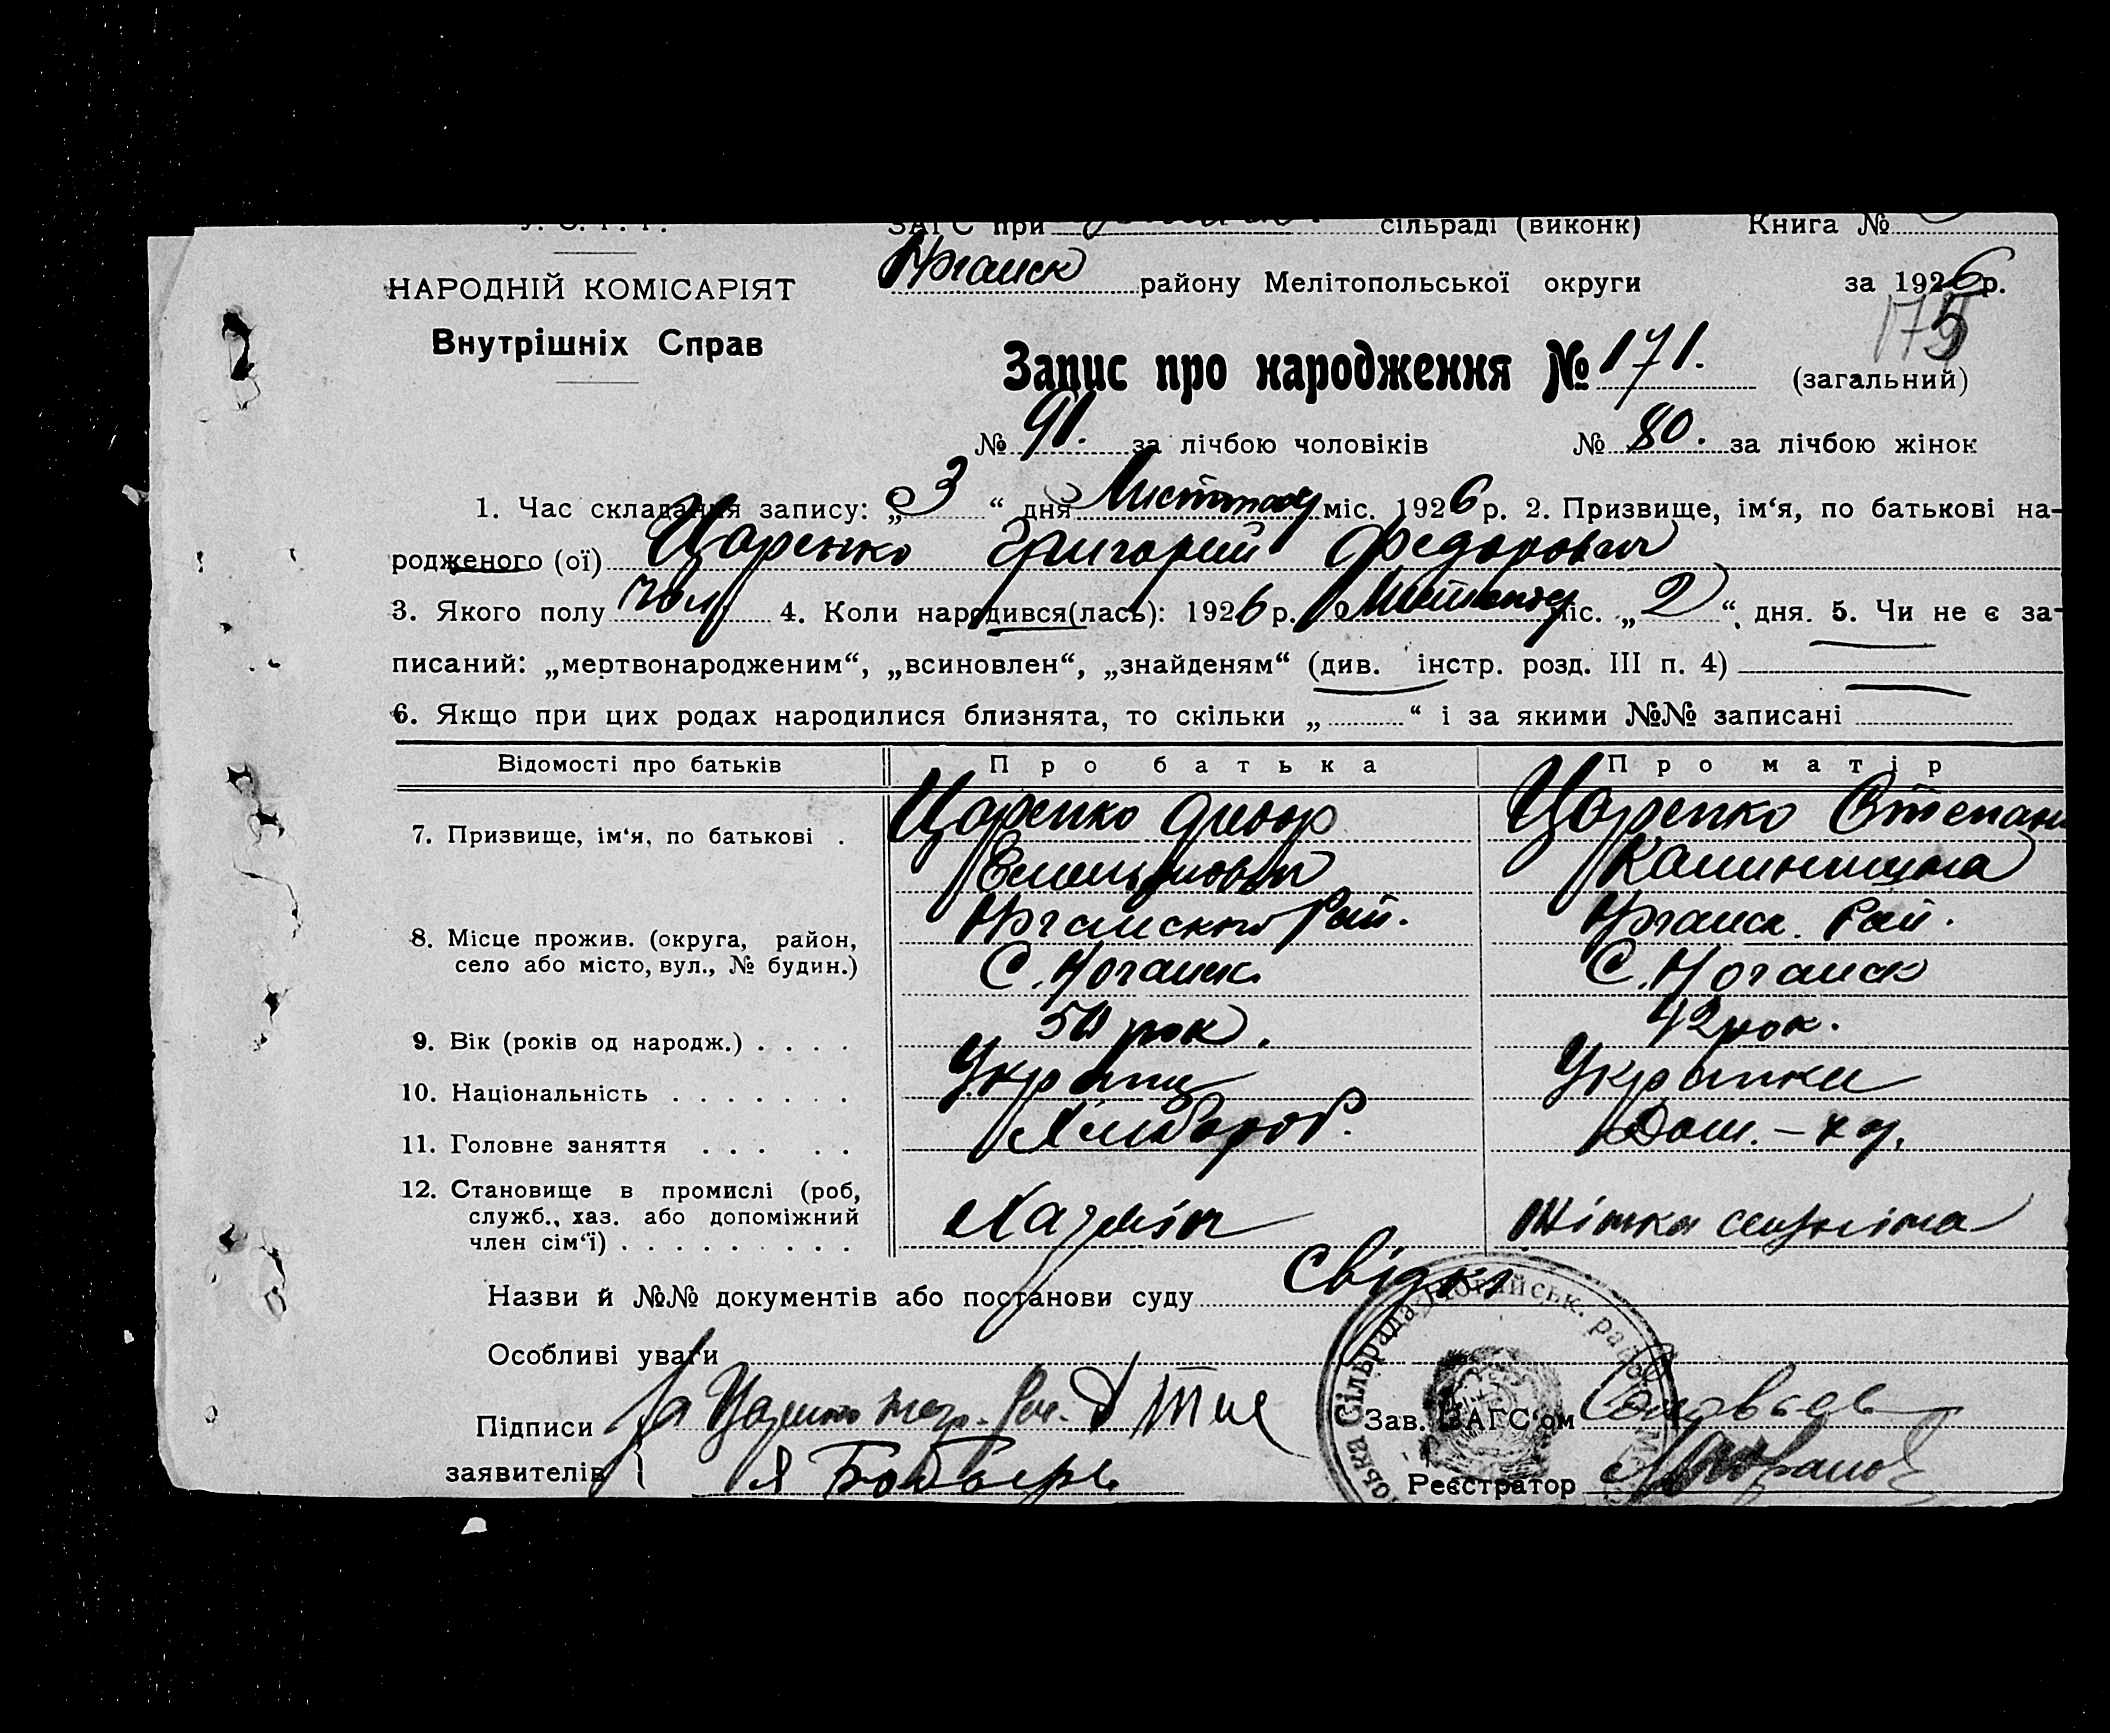 ЗАГС при сільраді (виконк) Книга №
НАРОДНІЙ КОМІСАРІЯТ
Ногайск району Мелітопольської округи за 1926 р.
Внутрішніх Справ
175
Запис про народження № 171. (загальний)
№ 91. за лічбою чоловіків № 80. за лічбою жінок
1. Час складання запису: „3“ дня Листопаду міс. 1926 р. 2. Призвище, ім‘я, по батькові на-
родженого (ої) Царенко Григорий Федорович
3. Якого полу чол. 4. Коли народився(лась): 1926 р. Листопаду міс. „2“ дня. 5. Чи не є за-
писаний: „мертвонародженим“, „всиновлен“, „знайденям“ (див. інстр. розд. III п. 4)
6. Якщо при цих родах народилися близнята, то скільки „ “ і за якими №№ записані
Відомості про батьків Про батька Про матір
7. Призвище, ім‘я, по батькові . Царенко Федор Царенко Степан
Емельянович
8. Місце прожив. (округа, район, Ногайского Рай. Ногайск. Рай.
село або місто, вул., № будин.) С. Ногайск. С. Ногайск
9. Вік (років од народж.) . . . . 50 рок. 42 рок.
10. Національність . . . . . . . Українц Українки
11. Головне заняття . . . . . Хлібороб. Дом. – хоз.
12. Становище в промислі (роб, Хазяїн Жінка селяніна
служб., хаз. або допоміжний
член сім‘ї) . . . . . . . . .
Назви й №№ документів або постанови суду Свідки
Особливі уваги
Підписи За Царенко негр. Рос. Зав. ЗАГС‘ом Соловьев
заявителів } Реєстратор
Сільрада Ногайськ. район